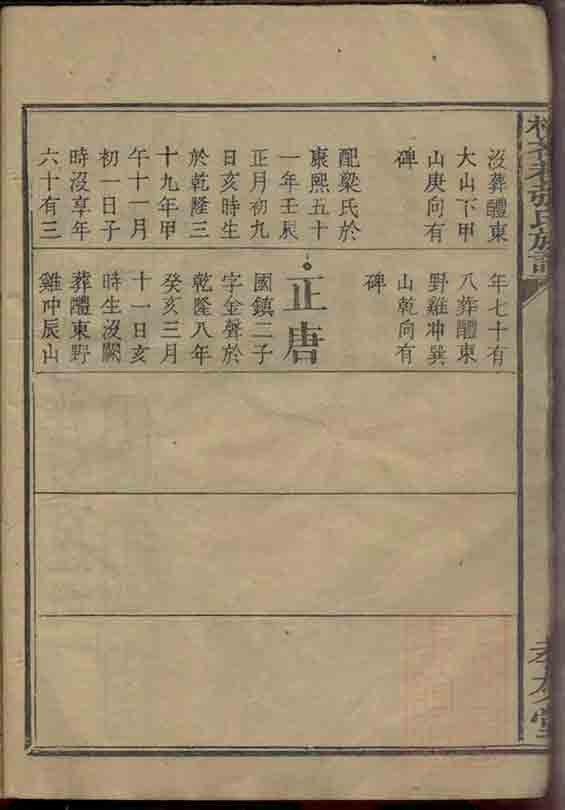 沒葬體東
大山下甲
山庚向有
碑
配梁氏於
康熙五十
一年壬辰
正月初九
日亥時生
於乾隆三
十九年甲
午十一月
初一日子
時沒享年
六十有三
年七十有
八葬體東
野雞冲巽
山乾向有
碑
正唐
國鎮二子
字金聲於
乾隆八年
癸亥三月
十一日亥
時生沒闕
葬體東野
雞冲辰山
氏族譜
孝友堂